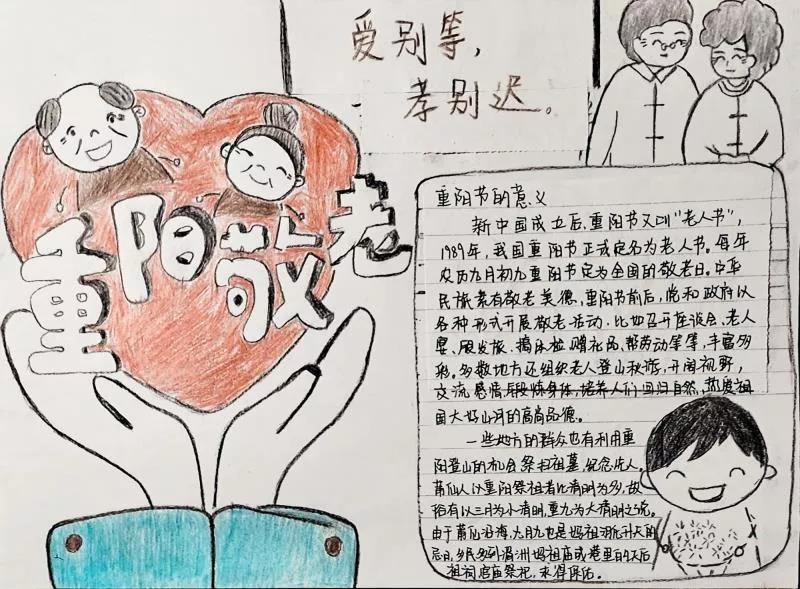 爱别等，
孝别迟。
重阳敬老
重阳节的意义
新中国成立后，重阳节又叫“老人节”，
1989年，我国重阳节正式定名为老人节。每年
农历九月初九重阳节定为全国的敬老日。中华
民族素有敬老美德，重阳节前后，党和政府以
各种形式开展敬老活动，比如召开座谈会、老人
宴、展发旅、搞体检、赠礼品、帮劳动等等，丰富多
彩。多数地方还组织老人登山秋游，开阔视野，
交流感情，锻炼身体，培养人们回归自然，热爱祖
国大好山河的高尚品德。
一些地方的群众也有利用重
阳登山的机会祭扫祖墓，纪念先人。
莆仙人以重阳祭祖者比清明为多，故
俗有以三月为小清明，重九为大清明之说。
由于莆仙沿海，九月九也是妈祖羽化升天的
忌日，乡民多到湄洲妈祖庙或港里的天后
祖祠、宫庙祭祀，求得保佑。